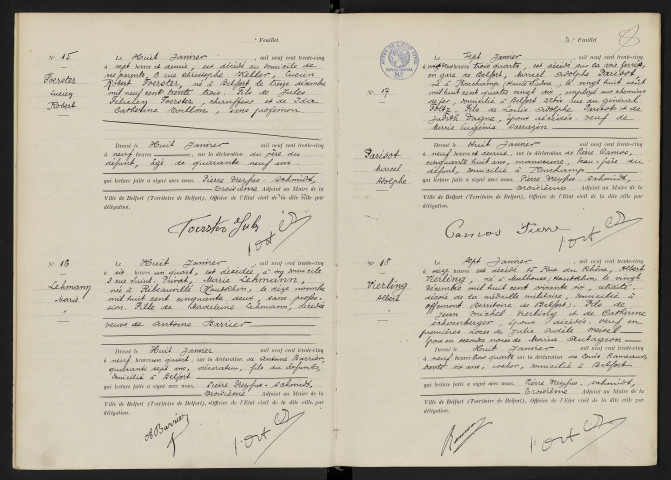 Feuillet
N° 15
Foerster
Lucien
Robert
Le Huit Janvier, mil neuf cent trente-cinq
à sept heures et demie, est décédé au domicile de
ses parents, rue Christophe Keller, Lucien
Robert Foerster, né à Belfort le treize décembre
mil neuf cent trente trois. Fils de Jules
Foerster, chauffeur et de Ida
Catherine, sans profession.
Dressé le Huit Janvier, mil neuf cent trente-cinq
à neuf heures, sur la déclaration du père du
défunt, âgé de quarante neuf ans.
qui lecture faite a signé avec nous, Pierre Dreyfus-Schmidt,
Troisième Adjoint au Maire de la
Ville de Belfort (Territoire de Belfort), Officier de l'Etat civil de la dite ville par
délégation.
N° 16
Lehmann
Marie
Le Huit Janvier, mil neuf cent trente-cinq
à six heures un quart, est décédée, à son domicile
Marie Lehmann,
née à Ribeauvillé (Haut-Rhin), le dix novembre
mil huit cent cinquante deux, sans profes-
sion. Fille de Madeleine Lehmann, décédée
veuve de Antoine Barrier
Dressé le Huit Janvier, mil neuf cent trente-cinq
à neuf heures un quart, sur la déclaration de Antoine Barrier,
quarante sept ans, décorateur, fils de la défunte,
domicilié à Belfort
qui lecture faite a signé avec nous, Pierre Dreyfus-Schmidt,
Troisième Adjoint au Maire de la
Ville de Belfort (Territoire de Belfort), Officier de l'Etat civil de la dite ville par
délégation.
Barrier
5e Feuillet
8
N° 17
Parisot
Marcel
Adolphe
Le Sept Janvier, mil neuf cent trente-cinq
à heures trois quarts, est décédé sur la voie ferrée,
en gare de Belfort, Marcel Adolphe Parisot
né à Ronchamp (Haute-Saône), le vingt huit août
mil huit cent quatre vingt dix, employé aux chemins
de fer, domicilié à Belfort rue du général
Fils de Louis Adolphe Parisot et de
Judith, époux décédés. Veuf de
Marie Eugénie
Dressé le Huit Janvier, mil neuf cent trente-cinq
à neuf heures, sur la déclaration de Pierre Camos,
cinquante huit ans, manoeuvre, beau-père du
défunt, domicilié à Ronchamp
qui lecture faite a signé avec nous, Pierre Dreyfus-Schmidt,
Troisième Adjoint au Maire de la
Ville de Belfort (Territoire de Belfort), Officier de l'Etat civil de la dite ville par
délégation.
Camos Pierre
N° 18
Vierling
Albert
Le Sept Janvier, mil neuf cent trente-cinq
à seize heures est décédé 15 Rue du Rhône, Albert
Vierling, né à Mulhouse, Haut-Rhin, le vingt
décembre mil huit cent soixante six, retraité,
décoré de la médaille militaire, domicilié à
Offemont (Territoire de Belfort). Fils de
Jean Michel Vierling et de Catherine
époux décédés. Veuf en
premières noces de Julie Adèle
époux en secondes noces de Maria
Dressé le Huit Janvier, mil neuf cent trente-cinq
à neuf heures trois quarts, sur la déclaration de Louis
trente six ans, cocher, domicilié à Belfort
qui lecture faite a signé avec nous, Pierre Dreyfus-Schmidt,
Troisième Adjoint au Maire de la
Ville de Belfort (Territoire de Belfort), Officier de l'Etat civil de la dite ville par
délégation.